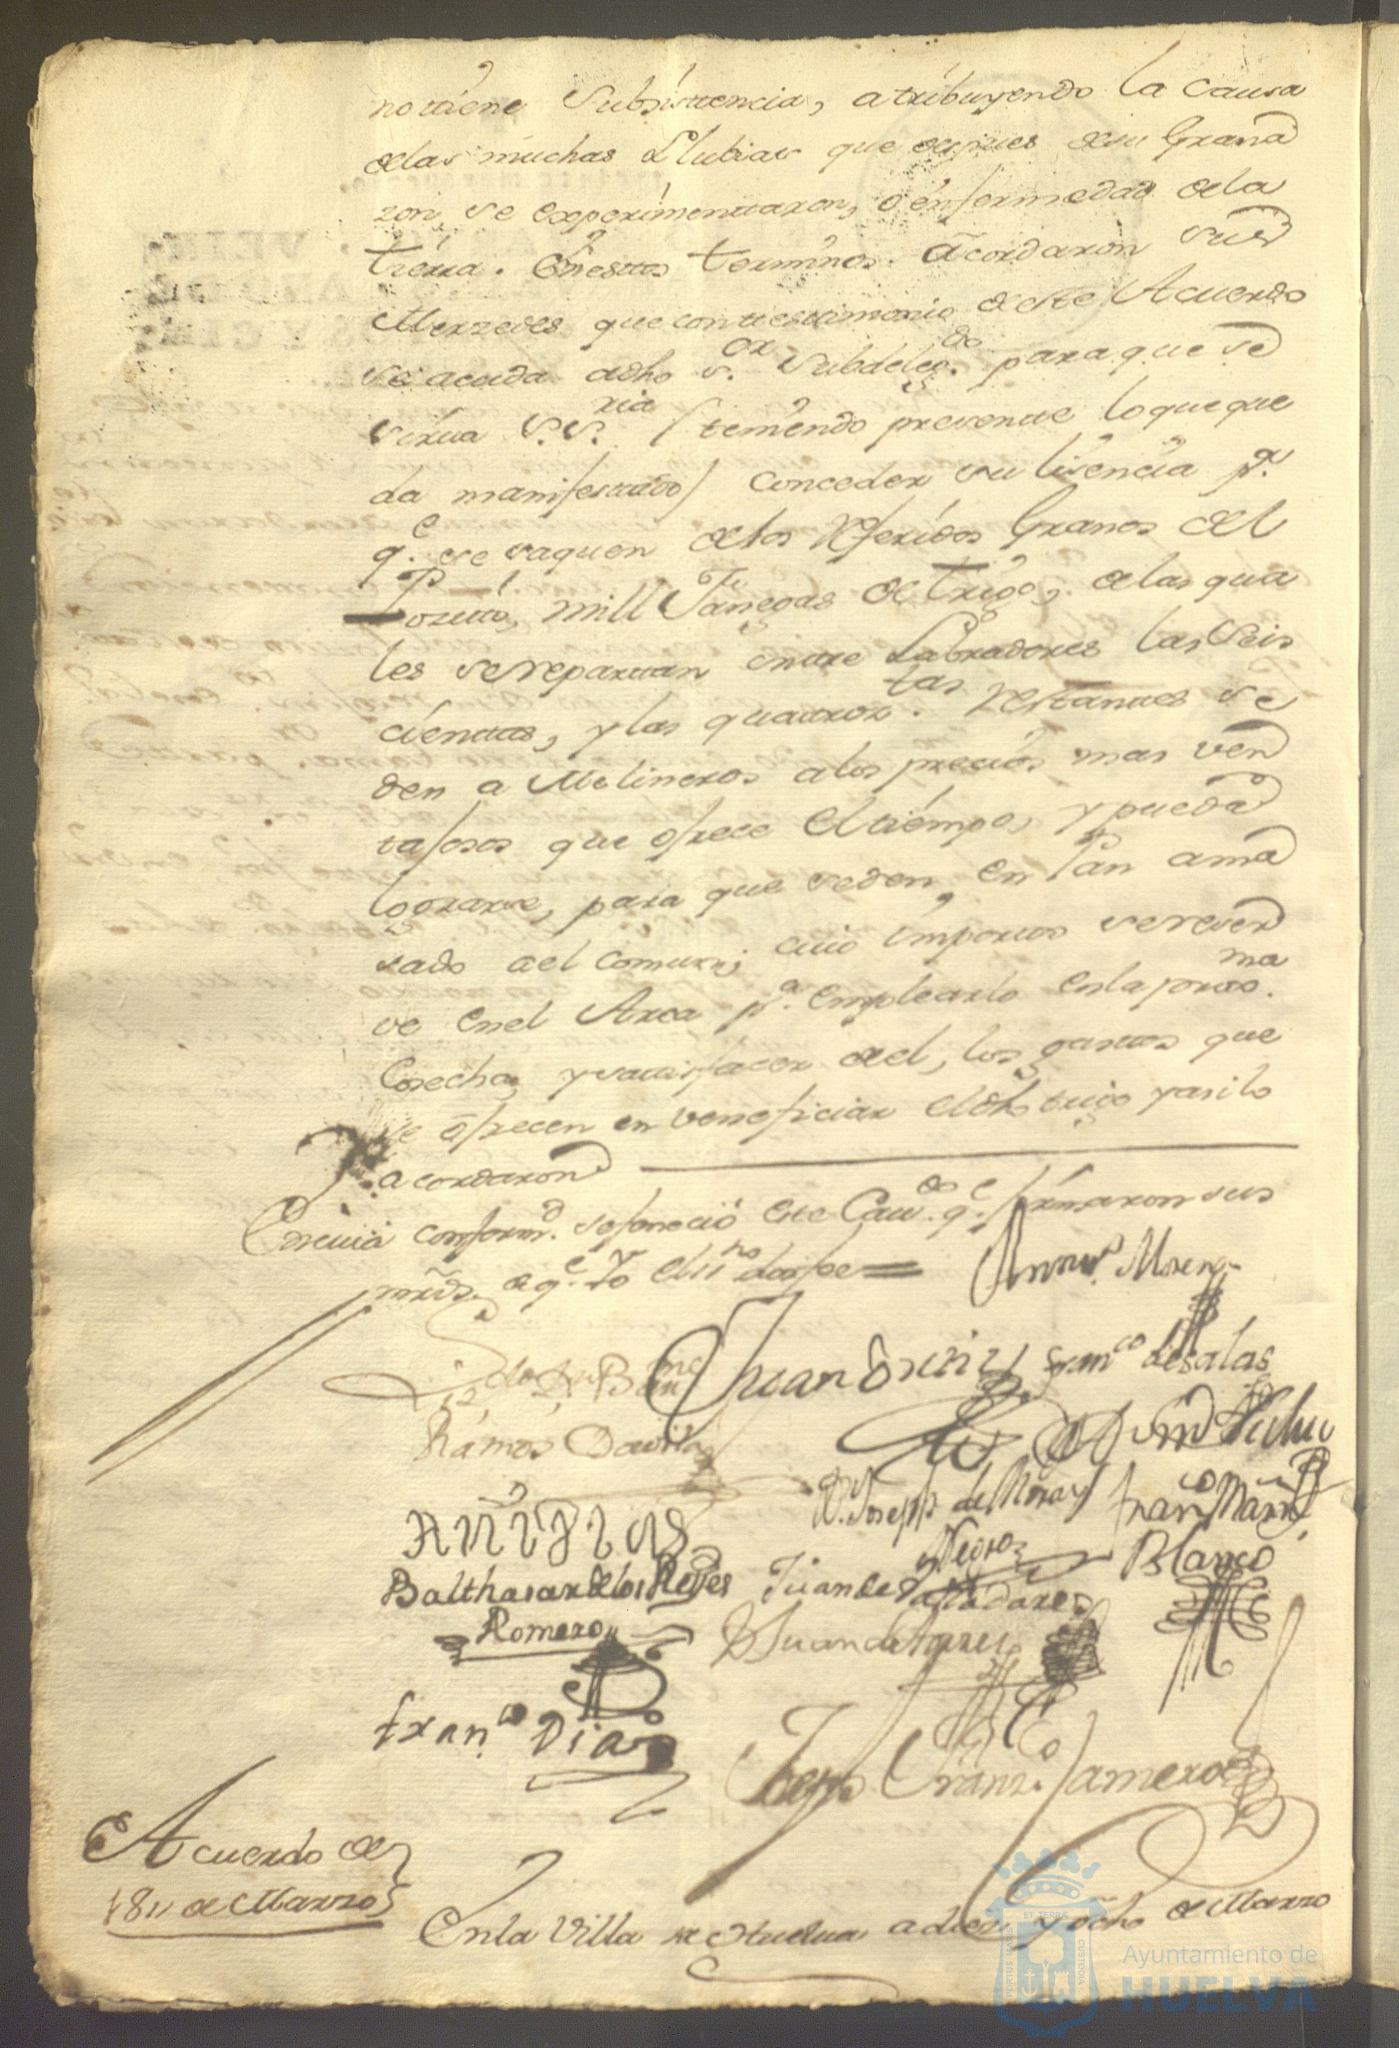 no tiene Subsistencia, atribuyendo la Causa
de las muchas Llubias que despues de su Grana
zon se experimentaron, o enfermedad de la
tierra. En estos terminos. acordaron sus
Merzedes que con testimonio de este Acuerdo
se acuda a dho s.or Subdeleg.do para que se
sirva S.S.ria (teniendo presente lo que que
da manifestado) conceder su lisencia p.a
q.e se saquen de los Referidos Granos del
Posito, mill Fanegas de trigo, de las qua
les se repartan entre Labradores las Seis
cientas, y las quatroz.tas restantes se
den a Molineros a los precios mas ven
tajosos que ofrece el tiempo, y pueda
lograrse, para que se den, en Pan ama
sado a el comun; cuio importe se reser
ve en el Arca p.a emplearlo en la procs.ma
Cosecha, y satisfacer de el, los gastos que
se ofrecen en veneficiar el dho trigo y asi lo
acordaron
En cuia conform.d se feneció este Cav.do q.e firmaron sus
mrds. de q.e Yo el ss.no doi fee =
Moreno
Juan
Fran.co de Salas
Ramos Davila
D. Joseph de
Negro
Fran.co Marn
Blanco
Balthasar de los Reyes
Romero
Juan de Valladares
D Juan de
Fran.co Diaz
Joseph Franz.co Jamero
Acuerdo de
18 de Marzo
En la Villa de Huelva a diez y ocho de Marzo
PORTUS MARIS
ET TERRÆ
CUSTODIA
Ayuntamiento de
HUELVA